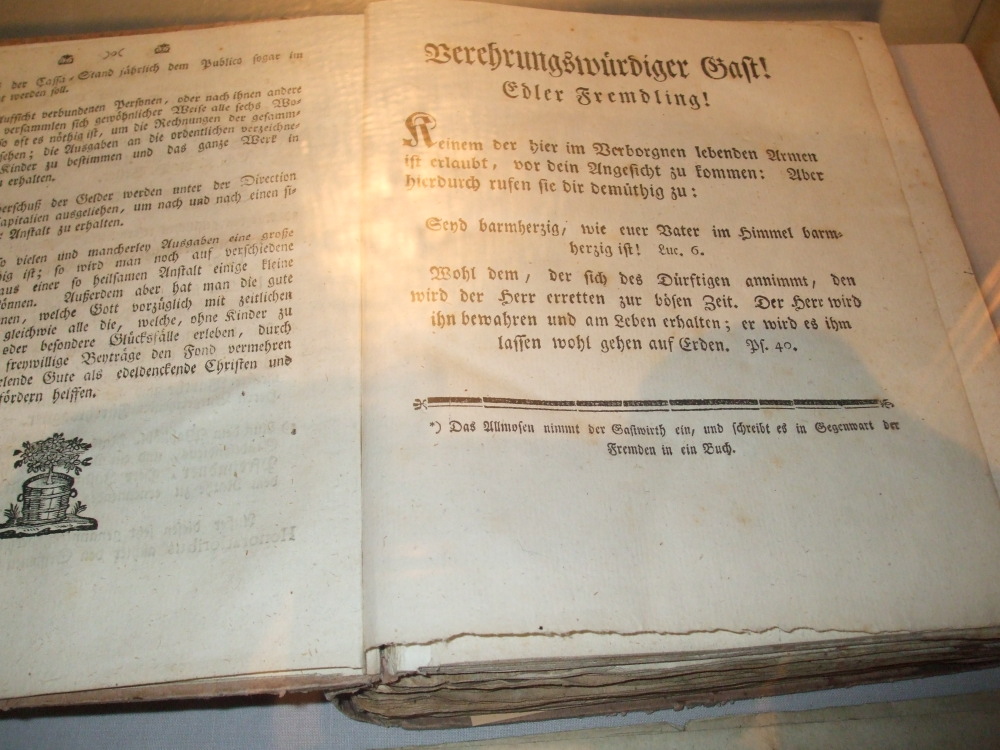 der Cassa-Stand jährlich dem Publico sogar im
werden soll.
Aufsicht verbundenen Personen, oder nach ihnen andere
versammlen sich gewöhnlicher Weise alle sechs Wo-
so oft es nöthig ist, um die Rechnungen der gesamm-
sehen; die Ausgaben an die ordentlichen verzeichne-
Kinder zu bestimmen und das ganze Werk in
erhalten.
der Gelder werden unter der Direction
Capitalien ausgeliehen, um nach und nach einen fi-
Anstalt zu erhalten.
so vielen und mancherley Ausgaben eine große
ist; so wird man noch auf verschiedene
aus einer so heilsamen Anstalt einige kleine
können. Außerdem aber hat man die gute
welche Gott vorzüglich mit zeitlichen
gleichwie alle die, welche, ohne Kinder zu
oder besondere Glücksfälle erleben, durch
freywillige Beyträge den Fond vermehren
Gute als edeldenckende Christen und
fördern helffen.
Verehrungswürdiger Gast!
Edler Fremdling!
Keinem der hier im Verborgnen lebenden Armen
ist erlaubt, vor dein Angesicht zu kommen: Aber
hierdurch rufen sie dir demüthig zu:
Seyd barmherzig, wie euer Vater im Himmel barm-
herzig ist! Luc. 6.
Wohl dem, der sich des Dürftigen annimmt, den
wird der Herr erretten zur bösen Zeit. Der Herr wird
ihn bewahren und am Leben erhalten; er wird es ihm
lassen wohl gehen auf Erden. Ps. 40.
*) Das Allmosen nimmt der Gastwirth ein, und schreibt es in Gegenwart der
Fremden in ein Buch.